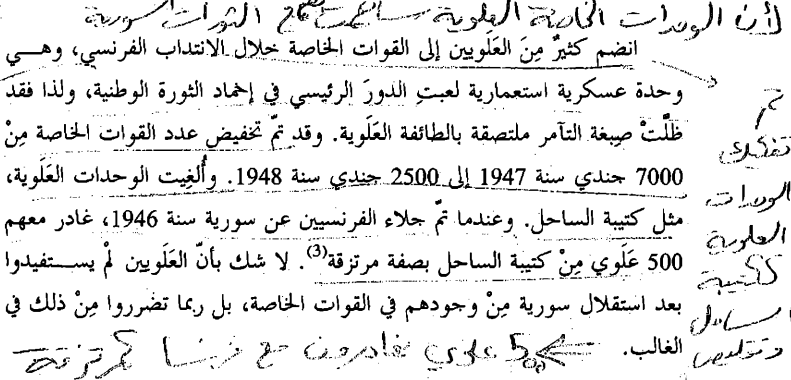 لأن الوحدات الخاصة العلوية ساهمت بقمع الثورات السورية
انضم كثيرٌ مِنَ العَلَويين إلى القوات الخاصة خلال الانتداب الفرنسي، وهـــي
وحدة عسكرية استعمارية لعبتِ الدورَ الرئيسي في إخماد الثورة الوطنية، ولذا فقد
ظلَّتْ صِبغة التآمر ملتصقة بالطائفة العَلَوية. وقد تمّ تخفيض عدد القوات الخاصة مِنْ
7000 جندي سنة 1947 إلى 2500 جندي سنة 1948. وأُلغِيت الوحدات العَلَوية،
مثل كتيبة الساحل. وعندما تمّ جلاء الفرنسيين عن سورية سنة 1946، غادر معهم
500 عَلَوي مِنْ كتيبة الساحل بصفة مرتزقة(3). لا شك بأنّ العَلَويين لمْ يســـتفيدوا
بعد استقلال سورية مِنْ وجودهم في القوات الخاصة، بل ربما تضرروا مِنْ ذلك في
الغالب.
تم
تفكيك
الوحدات
العلوية
ككتيبة
الساحل
وتقليص
500 علوي يغادرون مع فرنسا كمرتزقة